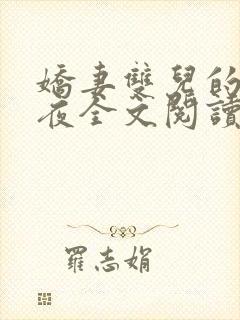 嬌妻雙兒的
夜全文閱讀
羅志娟